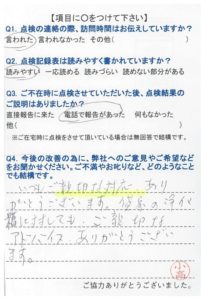 【項目に○をつけて下さい】
Q1. 点検の連絡の際、訪問時間はお伝えしていますか?
言われた 言われなかった その他( )
Q2. 点検記録表は読みやすく書かれていますか?
読みやすい 一応読める 読みづらい 読めない部分がある
Q3. ご不在時に点検させていただいた後、点検結果の
ご説明はありましたか?
直接報告に来た 電話で報告があった 何もなかった
他( )
※ご在宅時に点検をさせて頂いている場合は無回答で結構です。
Q4. 今後の改善の為に、弊社へのご意見やご希望など
をお聞かせください。ご不満やお叱りなど、どのようなこと
でも結構です。
いつもご親切な対応、あり
がとうございます。 浄化
槽に対しても、ご親切な
アドバイス、ありがとうござい
ます。
ご協力ありがとうございました。